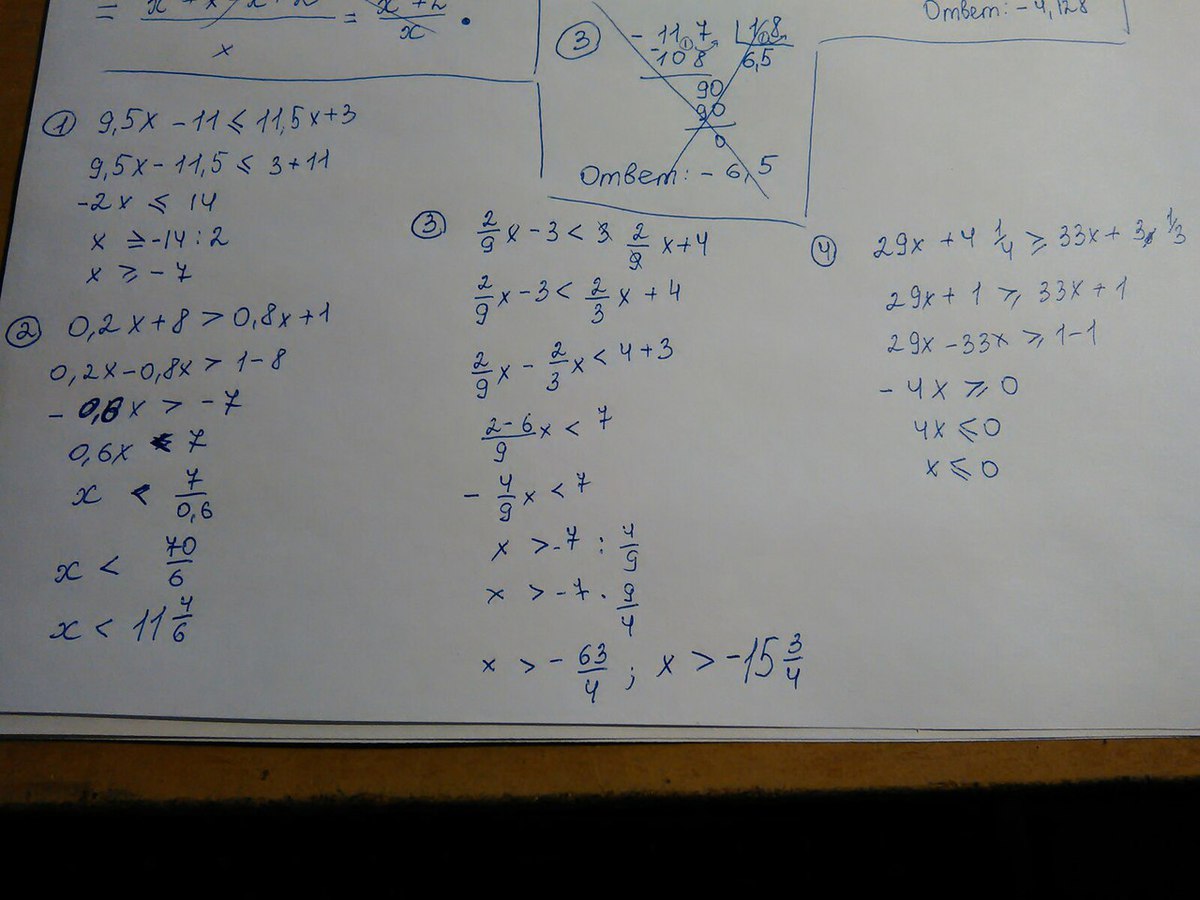 = x + 2 / x .
x
③ - 11,7 | 1,8
-10 8 6,5
90
90
0
Ответ: - 6,5
Ответ: - 4,128
① 9,5x - 11 ≤ 11,5x + 3
9,5x - 11,5 ≤ 3 + 11
-2x ≤ 14
x ≥ -14 : 2
x ≥ - 7
② 0,2x + 8 > 0,8x + 1
0,2x - 0,8x > 1 - 8
- 0,6x > - 7
0,6x < 7
x < 7/0,6
x < 70/6
x < 11 4/6
③ 2/9 x - 3 < 2/9 x + 4
2/9 x - 3 < 2/3 x + 4
2/9 x - 2/3 x < 4 + 3
2-6/9 x < 7
- 4/9 x < 7
x > -7 : 4/9
x > -7 · 9/4
x > - 63/4 ; x > -15 3/4
④ 29x + 4 1/4 ≥ 33x + 3 1/3
29x + 1 ≥ 33x + 1
29x - 33x ≥ 1 - 1
- 4x ≥ 0
4x ≤ 0
x ≤ 0